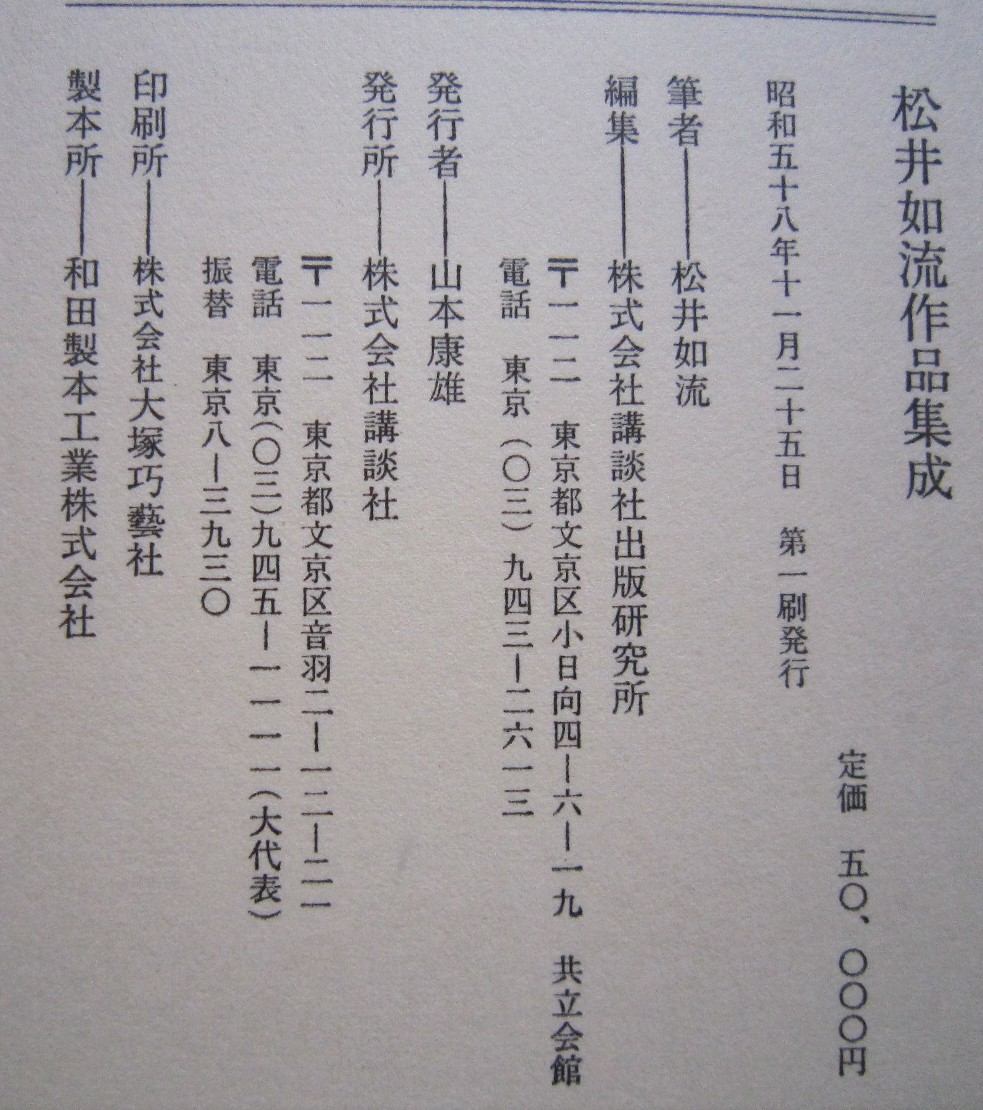 松井如流作品集成
定価　五〇、〇〇〇円
昭和五十八年十一月二十五日　第一刷発行
筆者――松井如流
編集――株式会社講談社出版研究所
〒一一二　東京都文京区小日向四―六―一九　共立会館
電話　東京（〇三）九四三―二六一三
発行者――山本康雄
発行所――株式会社講談社
〒一一二　東京都文京区音羽二―一二―二一
電話　東京（〇三）九四五―一一一一（大代表）
振替　東京八―三九三〇
印刷所――株式会社大塚巧藝社
製本所――和田製本工業株式会社